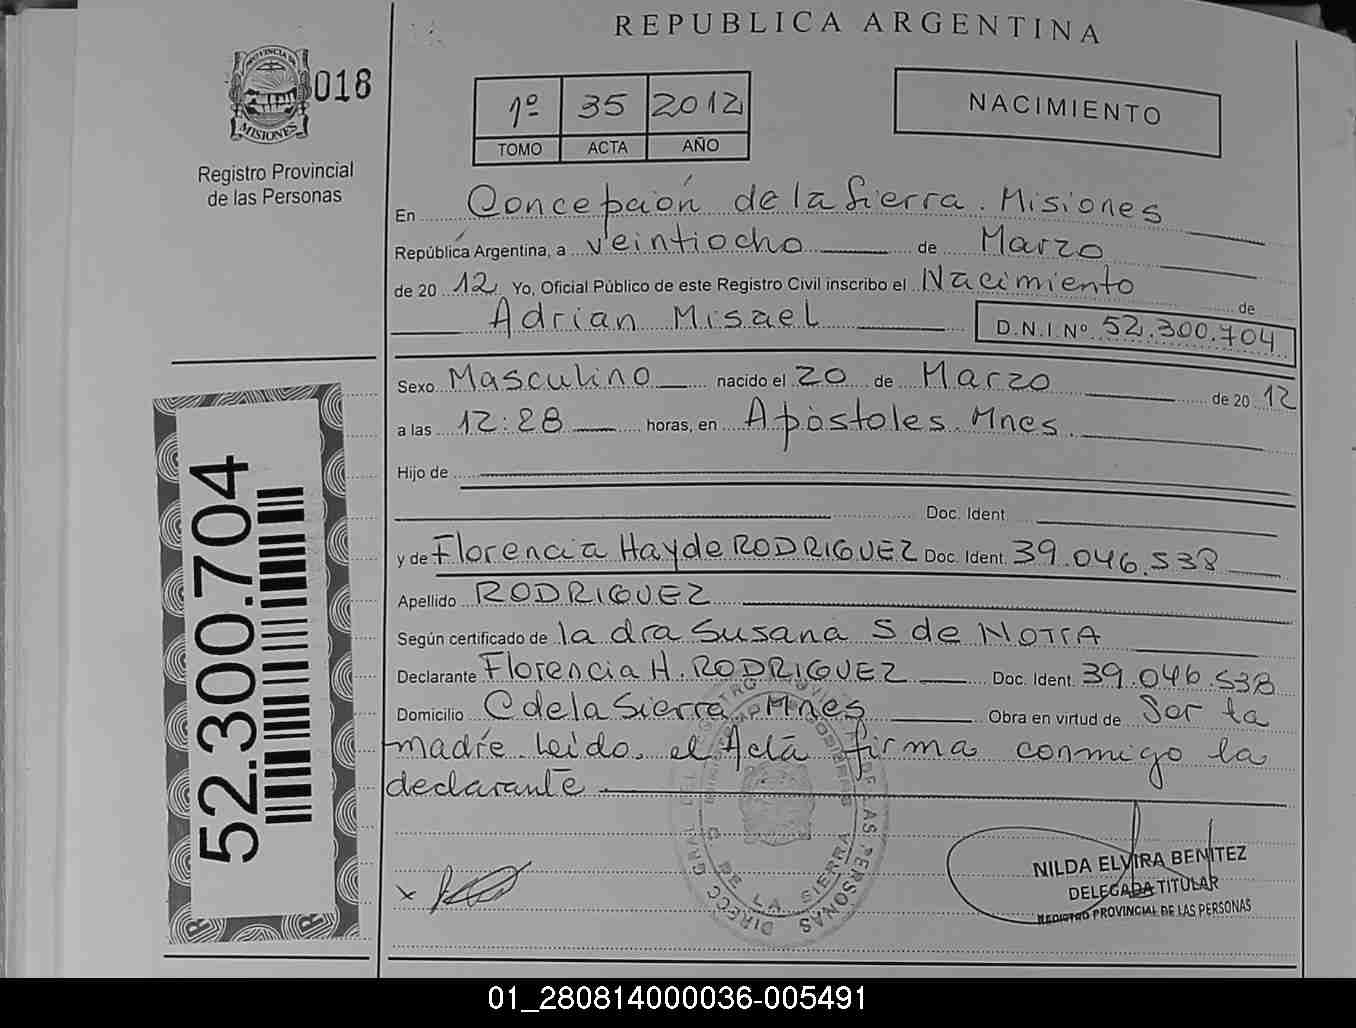 REPUBLICA ARGENTINA
PROVINCIA DE
MISIONES
018
Registro Provincial
de las Personas
1º 35 2012
TOMO ACTA AÑO
NACIMIENTO
En Concepción de la Sierra. Misiones
República Argentina, a veintiocho de Marzo
de 20 12 Yo, Oficial Público de este Registro Civil inscribo el Nacimiento
de
Adrian Misael D.N.I. Nº 52.300.704
Sexo Masculino nacido el 20 de Marzo de 20 12
a las 12:28 horas, en Apóstoles. Mnes.
Hijo de
Doc. Ident.
y de Florencia Hayde RODRIGUEZ Doc. Ident. 39.046.538
Apellido RODRIGUEZ
Según certificado de la dra Susana S de
Declarante Florencia H. RODRIGUEZ Doc. Ident. 39.046.538
Domicilio C de la Sierra Mnes Obra en virtud de Ser la
madre. Leido. el Acta firma conmigo la
declarante
52.300.704
C. DE LA SIERRA
NILDA ELVIRA BENITEZ
DELEGADA TITULAR
REGISTRO PROVINCIAL DE LAS PERSONAS
01_280814000036-005491